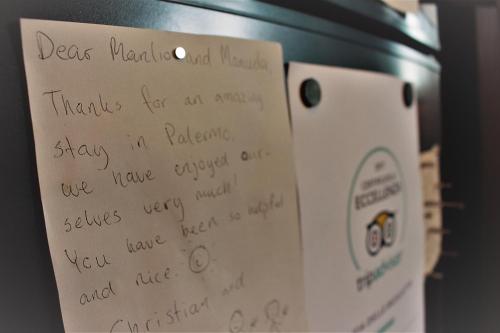 Dear Manlio and Manuela,
Thanks for an amazing
stay in Palermo.
we have enjoyed our-
selves very much!
You have been so helpful
and nice.
Christian and
CERTIFICATE of
EXCELLENCE
tripadvisor